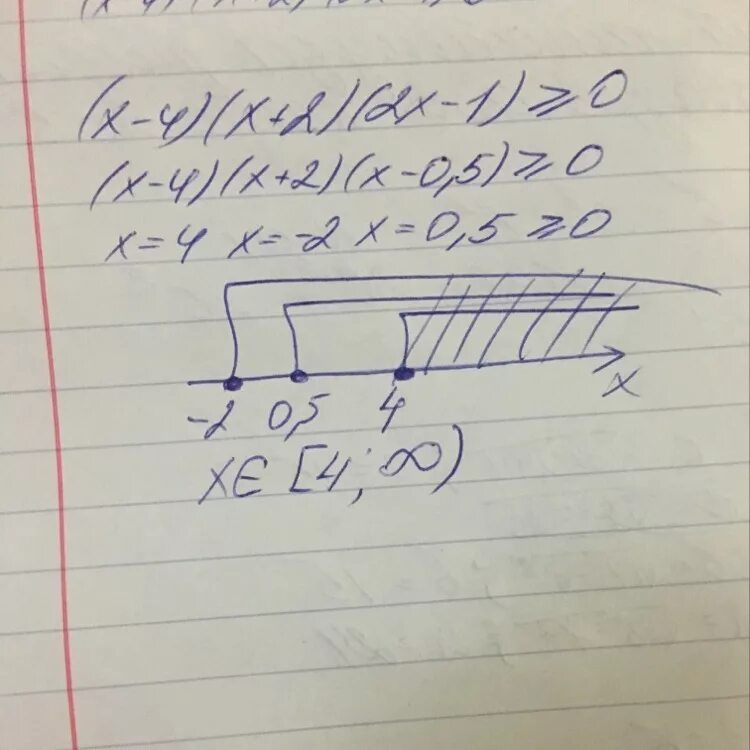 (x-4)(x+2)(2x-1)≥0
(x-4)(x+2)(x-0,5)≥0
x=4 x=-2 x=0,5 ≥0
-2 0,5 4 x
x∈[4;∞)